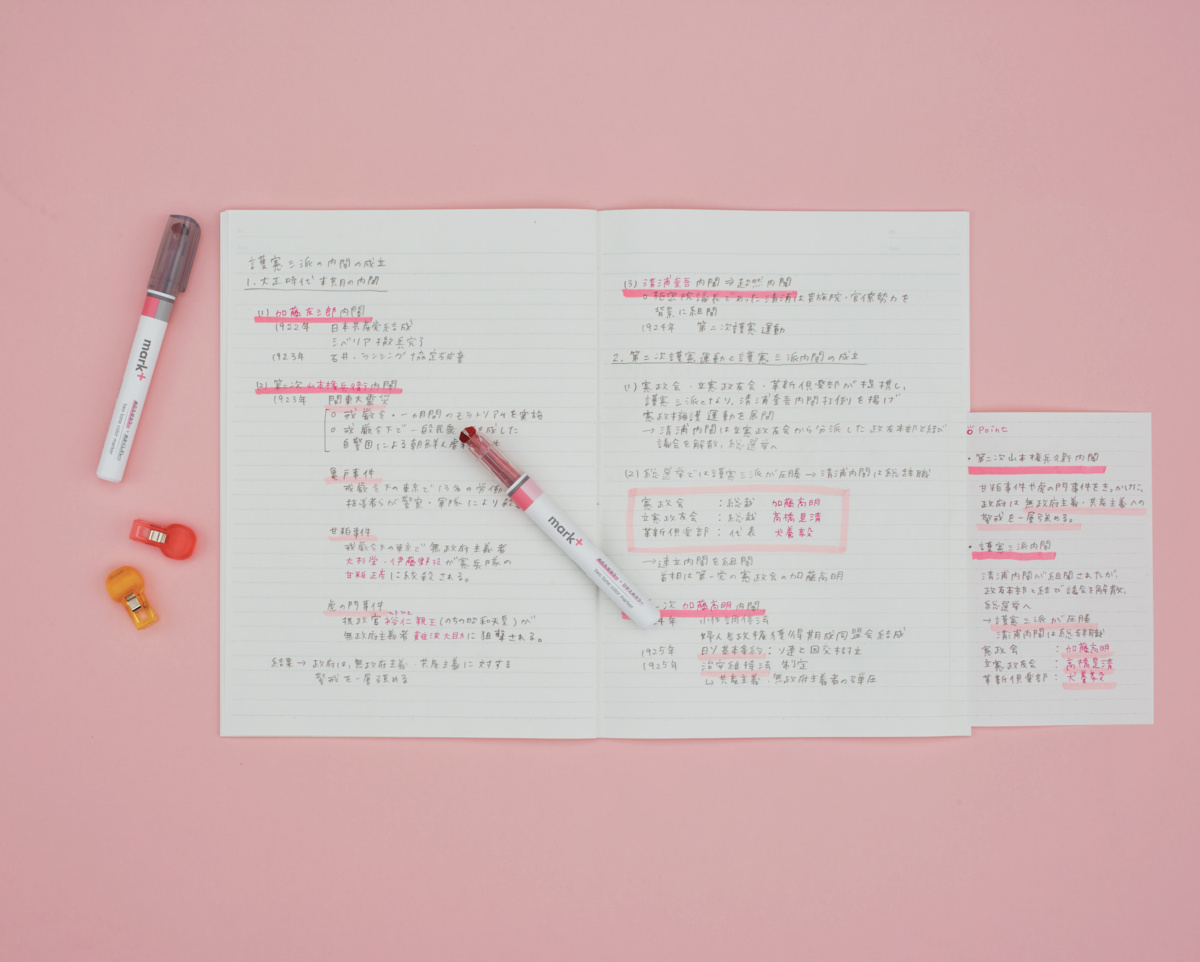 護憲三派の内閣の成立
1. 大正時代末期の内閣
(1) 加藤友三郎内閣
1922年 日本共産党結成
シベリア撤兵完了
1923年 石井・ランシング協定破棄
(2) 第二次山本権兵衛内閣
1923年 関東大震災
○ 戒厳令・一ヵ月間のモラトリアムを実施
○ 戒厳令下で一般民衆
自警団による朝鮮人
亀戸事件
戒厳令下の東京で13名の労働
指導者らが警察・軍隊により
甘粕事件
戒厳令下の東京で無政府主義者
大杉栄・伊藤野枝が憲兵隊の
甘粕正彦に絞殺される。
虎の門事件
摂政宮裕仁親王(のちの昭和天皇)が
無政府主義者難波大助に狙撃される。
結果→政府は、無政府主義・共産主義に対する
警戒を一層強める
(3) 清浦奎吾内閣⇒超然内閣
○枢密院議長であった清浦は貴族院・官僚勢力を
背景に組閣
1924年 第二次護憲運動
2. 第二次護憲運動と護憲三派内閣の成立
(1) 憲政会・立憲政友会・革新倶楽部が提携し、
護憲三派となり、清浦奎吾内閣打倒を掲げ
憲政擁護運動を展開
→清浦内閣は立憲政友会から分派した政友本部と結び
議会を解散、総選挙へ
(2) 総選挙では護憲三派が圧勝→清浦内閣は総辞職
憲政会 : 総裁 加藤高明
立憲政友会 : 総裁 高橋是清
革新倶楽部 : 代表 犬養毅
→連立内閣を組閣
首相は第一党の憲政会の加藤高明
次 加藤高明内閣
4年 小作調停法
婦人参政権獲得期成同盟会結成
1925年 日ソ基本条約:ソ連と国交樹立
1925年 治安維持法 制定
↳共産主義・無政府主義者の弾圧
Point
• 第二次山本権兵衛内閣
甘粕事件や虎の門事件をきっかけに、
政府は無政府主義・共産主義への
警戒を一層強める。
• 護憲三派内閣
清浦内閣が組閣されたが、
政友本部と結び議会を解散、
総選挙へ
→護憲三派が圧勝
清浦内閣は総辞職
憲政会 : 加藤高明
立憲政友会 : 高橋是清
革新倶楽部 : 犬養毅
mark+
two tone color marker
mark+
two tone color marker